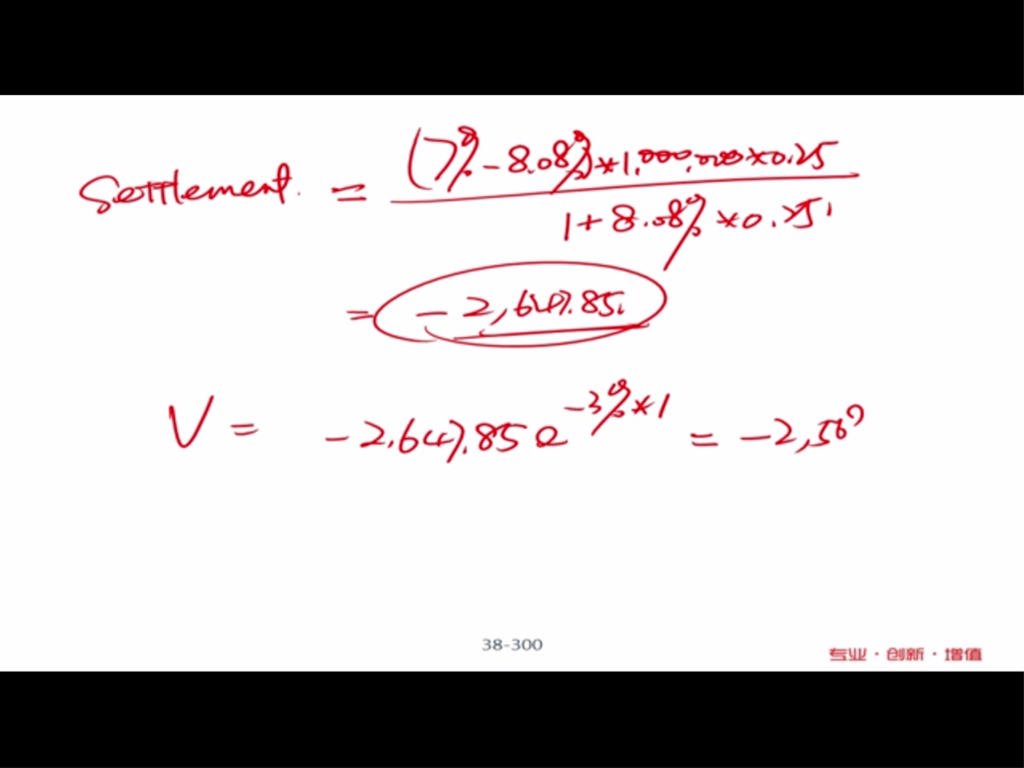 Settlement. = (7% - 8.08%) * 1,000,000 * 0.25
1 + 8.08% * 0.25
= - 2,647.85
V = - 2,647.85 e -3% * 1 = - 2,569
38-300
专业 · 创新 · 增值